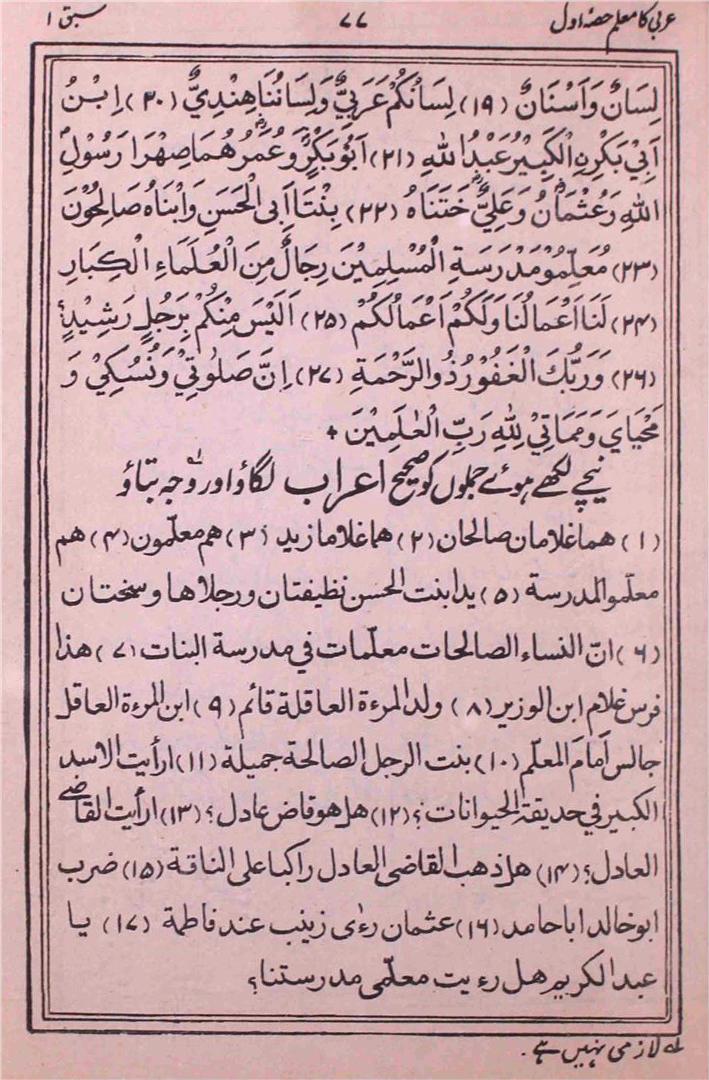 عربی کا معلم حصہ اول ۷۷ سبق ۱
لِسَانٌ وَاَسْنَانٌ (۱۹) لِسَانُكُمْ عَرَبِيٌّ وَلِسَانُنَا هِنْدِيٌّ (۲۰) اِبْنُ
اَبِيْ بَكْرِنِ الْكَبِيْرُ عَبْدُ اللهِ (۲۱) اَبُوْبَكْرٍ وَعُمَرُ هُمَا صِهْرَا رَسُوْلِ
اللهِ وَعُثْمَانُ وَعَلِيٌّ خَتَنَاهُ (۲۲) بِنْتَا اَبِى الْحَسَنِ وَابْنَاهُ صَالِحُوْنَ
(۲۳) مُعَلِّمُوْ مَدْرَسَةِ الْمُسْلِمِيْنَ رِجَالٌ مِنَ الْعُلَمَاءِ الْكِبَارِ
(۲۴) لَنَا اَعْمَالُنَا وَلَكُمْ اَعْمَالُكُمْ (۲۵) اَلَيْسَ مِنْكُمْ بِرَجُلٍ رَشِيْدٍ؟
(۲۶) وَرَبُّكَ الْغَفُوْرُ ذُو الرَّحْمَةِ (۲۷) اِنَّ صَلٰوتِيْ وَنُسُكِيْ وَ
مَحْيَايَ وَمَمَاتِيْ لِلّٰهِ رَبِّ الْعٰلَمِيْنَ +
نیچے لکھے ہوئے جملوں کو صحیح اعراب لگاؤ اور وجہ بتاؤ
(۱) هما غلامان صالحان (۲) هما غلاما زيد (۳) هم معلّمون (۴) هم
معلّمو المدرسة (۵) يدا بنت الحسن نظيفتان ورجلاها وسختان
(۶) انّ النساء الصالحات معلّمات في مدرسة البنات (۷) هذا
فرس غلام ابن الوزير (۸) ولد المرءة العاقلة قائم (۹) ابن المرءة العاقل
جالس اَمامَ المعلّم (۱۰) بنت الرجل الصالحة جميلة (۱۱) ارأيت الاسد
الكبير في حديقة الحيوانات؟ (۱۲) هل هو قاض عادل؟ (۱۳) ارأيت القاضي
العادل؟ (۱۴) هل ذهب القاضى العادل راكبا على الناقة (۱۵) ضرب
ابو خالد ابا حامد (۱۶) عثمان رءى زينب عند فاطمة (۱۷) يا
عبد الكريم هل رءيت معلّمى مدرستنا؟
لہ لازمی نہیں ہے۔